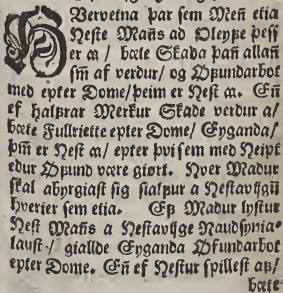 HVervetna þar sem Meñ etia
Heste Mañs ad Oleyfe þess
er a / bæte Skada þañ allañ
sm̃ af verdur / og Ofundarbot
med epter Dome / þeim er Hest a. Eñ
ef halfrar Merkur Skade verdur a /
bæte Fullriette epter Dome / Eyganda /
þm̃ er Hest a / epter þvi sem med Heipt
edur Ofund være giørt. Hver Madur
skal abyrgiast sig sialfur a Hestavijgū
hverier sem etia. Ef Madur lystur
Hest Mañs a Hestavijge Naudsynia-
laust / giallde Eyganda Ofundarbot
epter Dome. Eñ ef Hestur spillest af /
bæte